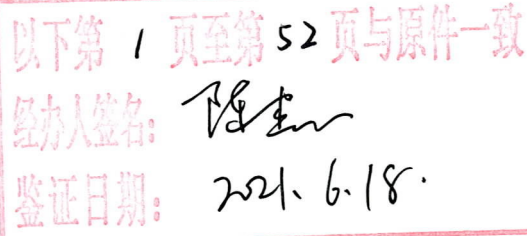 以下第 1 页至第 52 页与原件一致
经办人签名: 陈
鉴证日期: 2021. 6. 18.